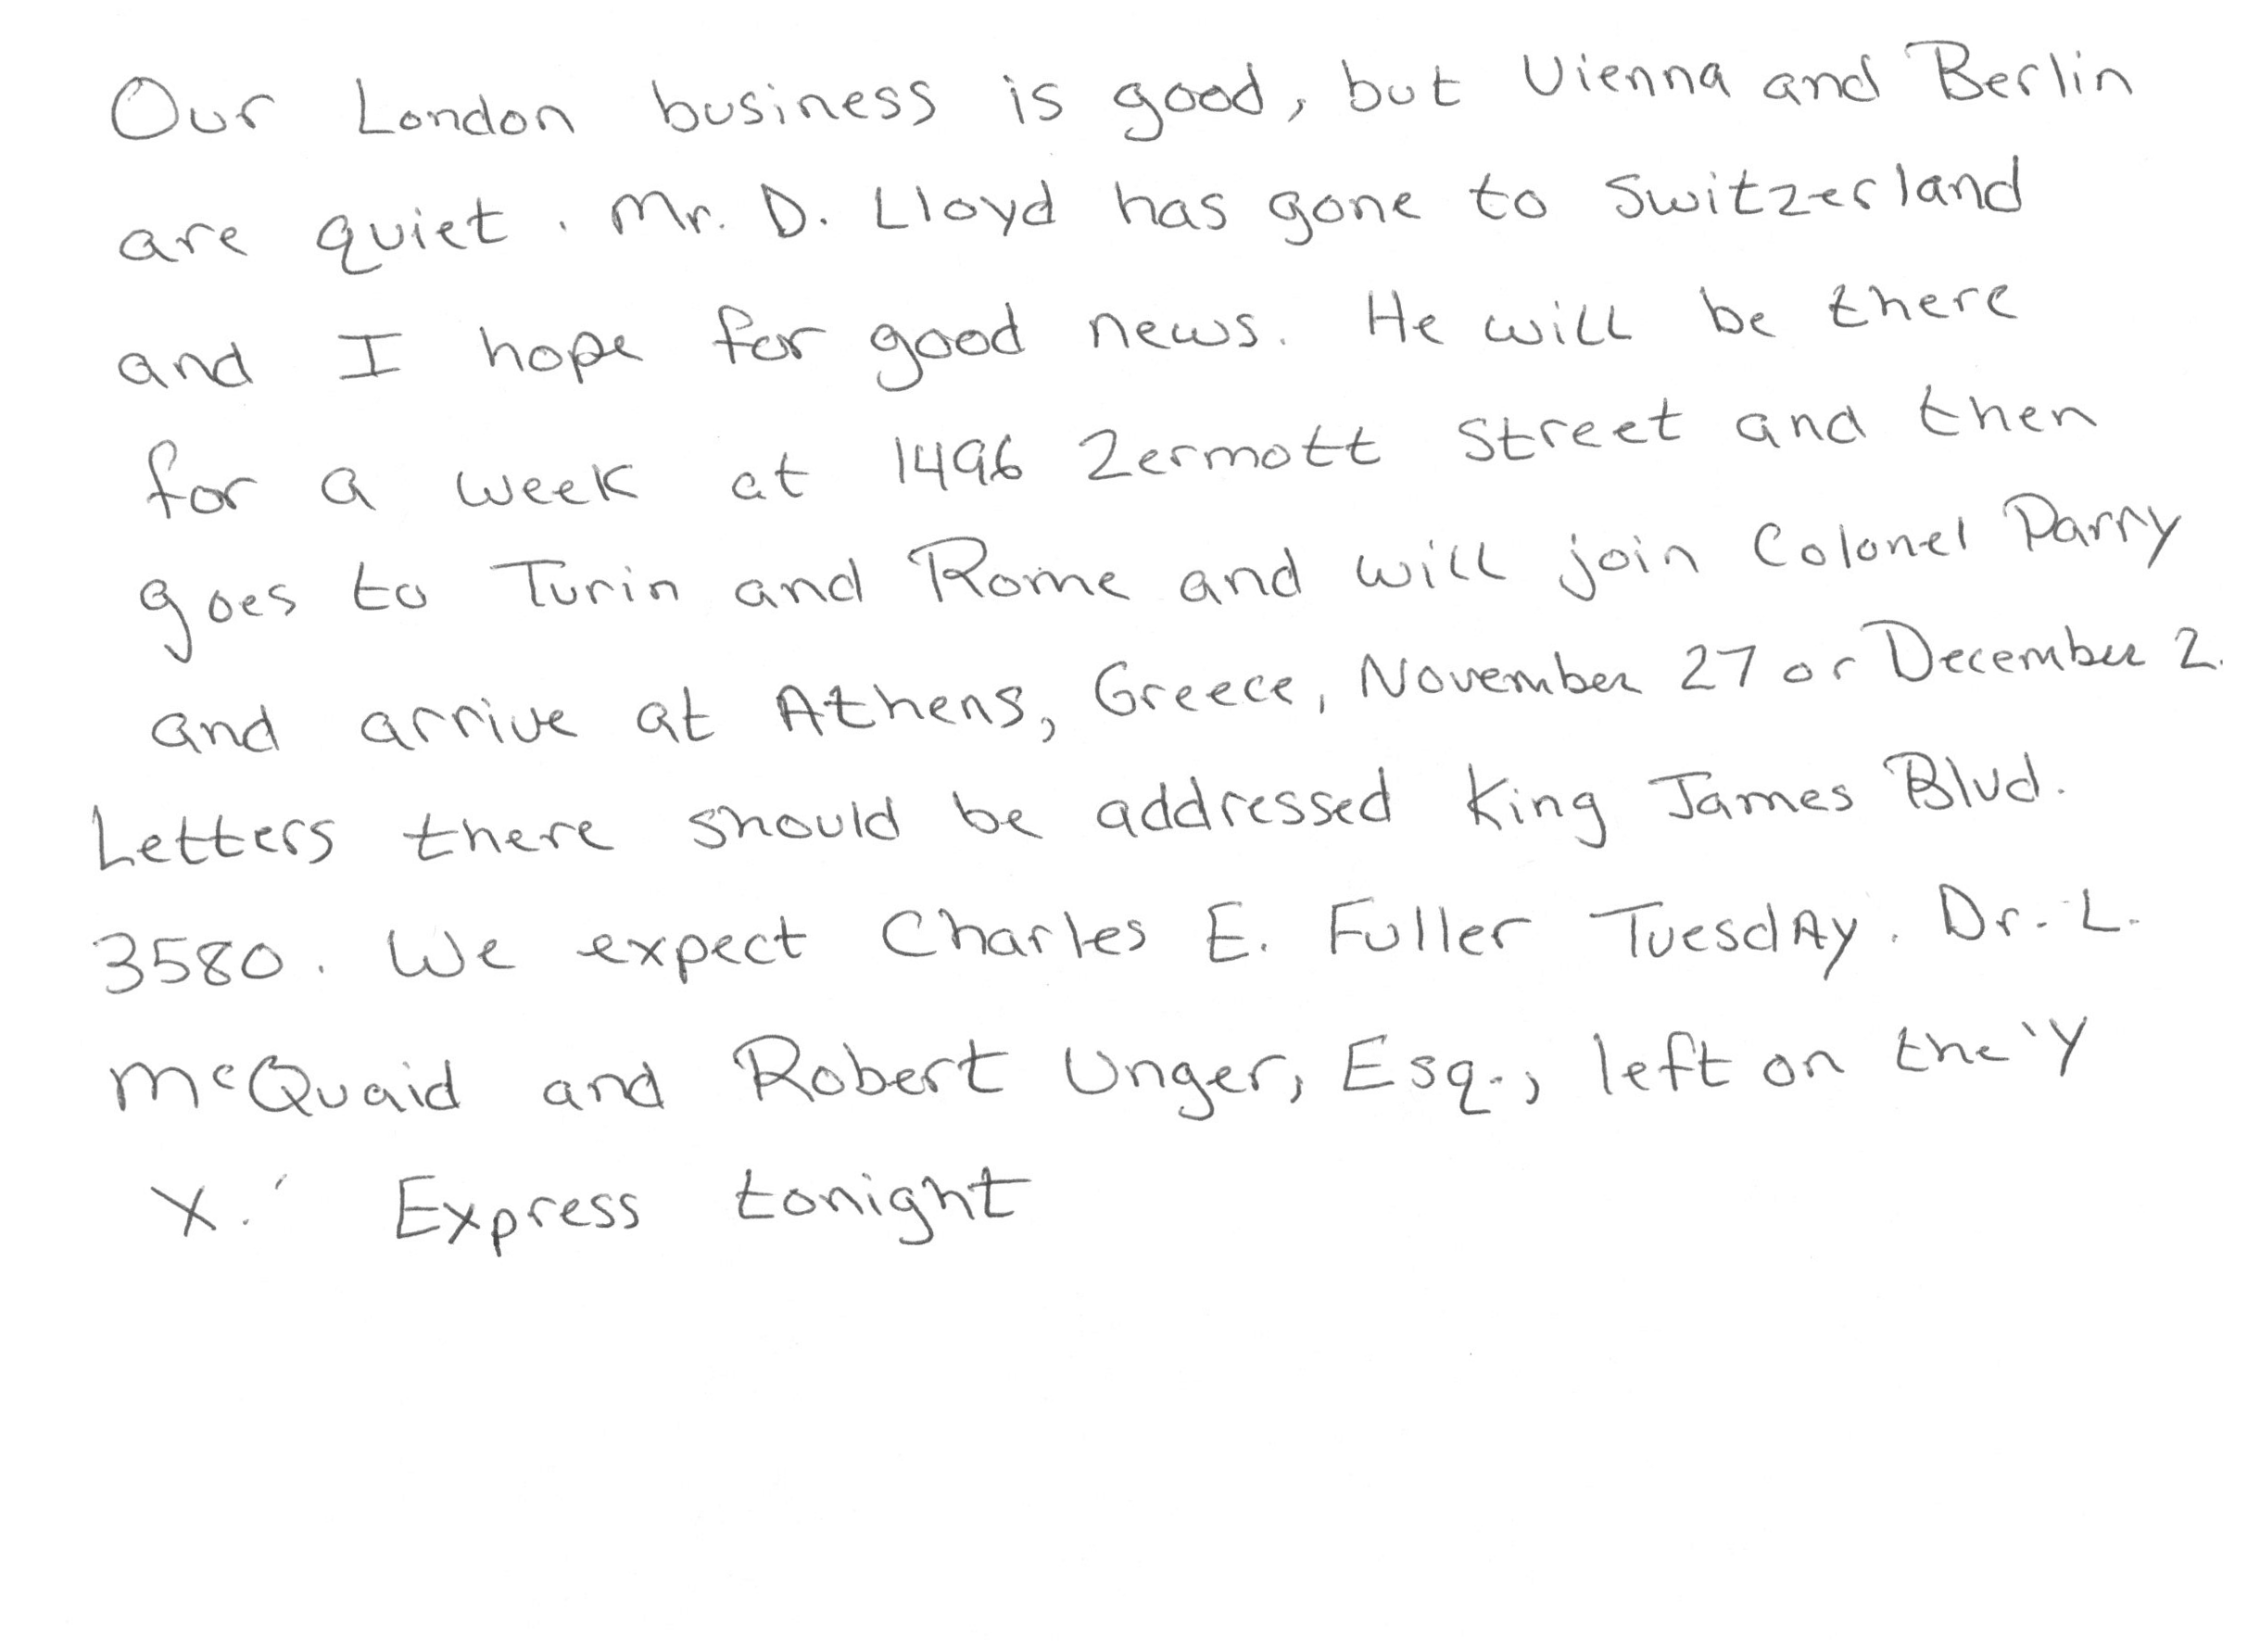 Our London business is good, but Vienna and Berlin
are quiet. Mr. D. Lloyd has gone to Switzerland
and I hope for good news. He will be there
for a week at 1496 Zermott Street and then
goes to Turin and Rome and will join Colonel Parry
and arrive at Athens, Greece, November 27 or December 2.
Letters there should be addressed King James Blvd.
3580. We expect Charles E. Fuller Tuesday. Dr. L.
McQuaid and Robert Unger, Esq., left on the 'Y
X.' Express tonight